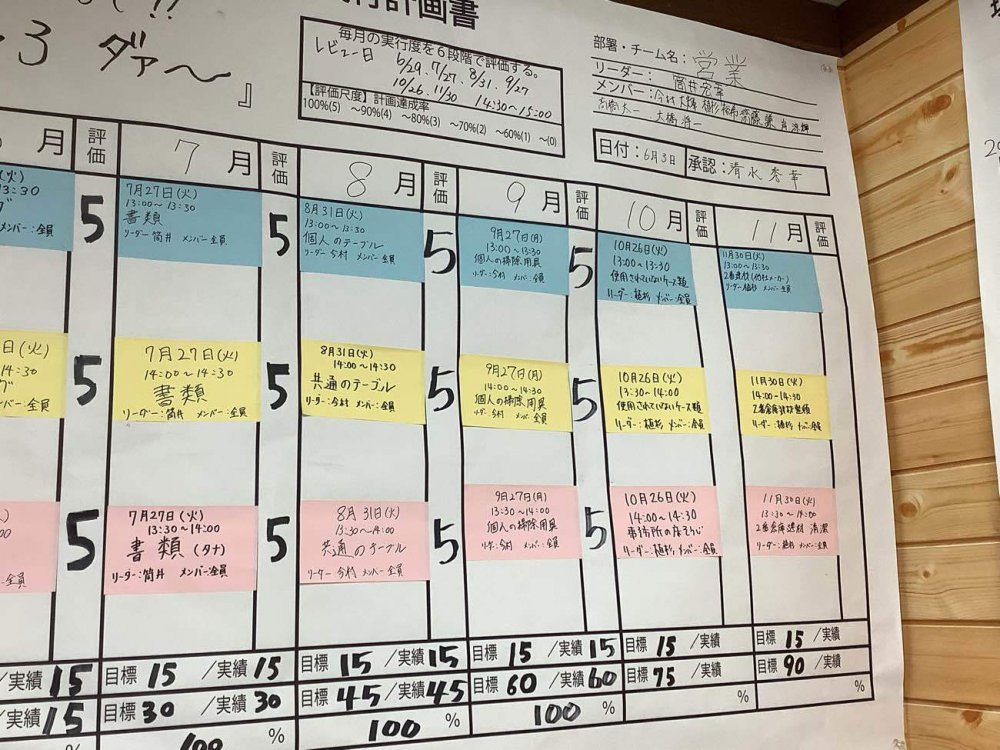 計画書
ダァ〜』
毎月の実行度を6段階で評価する。
レビュー日 6/29、7/27、8/31、9/27
10/26、11/30 14:30~15:00
【評価尺度】計画達成率
100%(5) ~90%(4) ~80%(3) ~70%(2) ~60%(1) ~(0)
部署・チーム名：営業
リーダー：筒井宏幸
メンバー：今村
大橋将一
日付：6月3日 承認：清水秀幸
月 評価 7月 評価 8月 評価 9月 評価 10月 評価 11月 評価
13:30
メンバー：全員
5
7月27日(火)
13:00~13:30
書類
リーダー筒井 メンバー全員
5
8月31日(火)
13:00~13:30
個人のテーブル
リーダー今村 メンバー全員
5
9月27日(月)
13:00~13:30
個人の掃除用具
リーダー：今村 メンバー：全員
5
10月26日(火)
13:00~13:30
使用されていないケース類
リーダー：植杉 メンバー：全員
11月30日(火)
13:00~13:30
リーダー植杉 メンバー全員
日(火)
14:30
メンバー：全員
5
7月27日(火)
14:00~14:30
書類
リーダー：筒井 メンバー：全員
5
8月31日(火)
14:00~14:30
共通のテーブル
リーダー：今村 メンバー：全員
5
9月27日(月)
14:00~14:30
個人の掃除用具
リーダー：今村 メンバー：全員
5
10月26日(火)
13:30~14:00
使用されていないケース類
リーダー：植杉 メンバー：全員
11月30日(火)
14:00~14:30
リーダー：植杉 メンバー：全員
全員
5
7月27日(火)
13:30~14:00
書類(タナ)
リーダー：筒井 メンバー：全員
5
8月31日(火)
13:30~14:00
共通のテーブル
リーダー今村 メンバー：全員
5
9月27日(月)
13:30~14:00
個人の掃除用具
リーダー：今村 メンバー：全員
5
10月26日(火)
14:00~14:30
事務所の床そうじ
リーダー：植杉 メンバー：全員
11月30日(火)
13:30~14:00
2番倉庫建材 清潔
リーダー：植杉 メンバー：全員
/実績15 目標15/実績15 目標15/実績15 目標15/実績15 目標15/実績 目標15/実績
/実績15 目標30/実績30 目標45/実績45 目標60/実績60 目標75/実績 目標90/実績
% 100 % 100% 100% % %